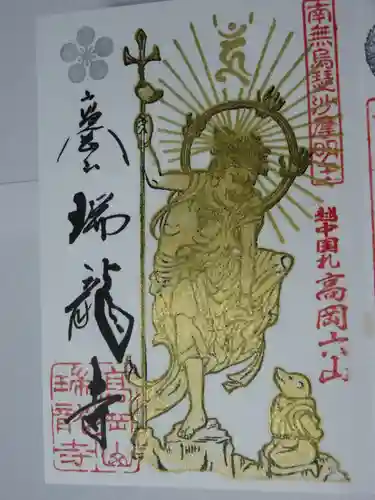 南無烏瑟沙摩明王
越中国札 高岡六山
瑞龍寺
高岡山
瑞龍寺